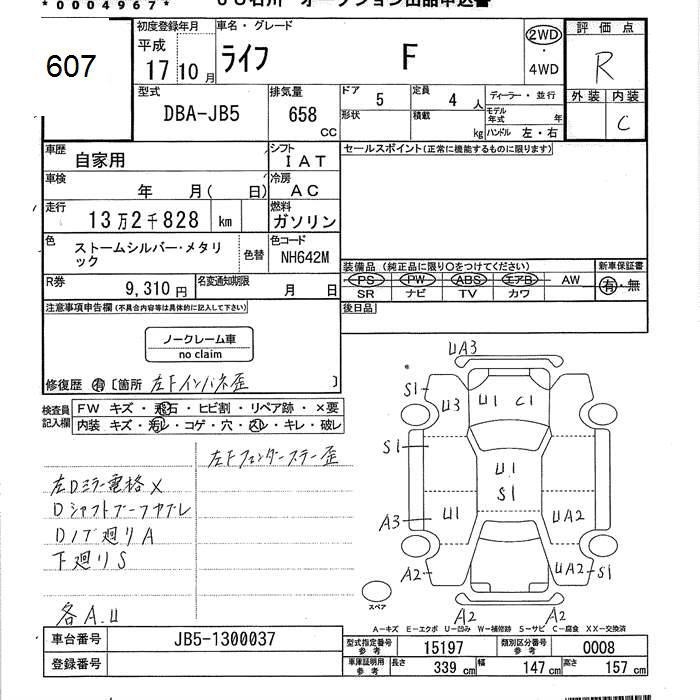 *0004967*
オークション出品申込書
607
初度登録年月
平成
17 10 月
車名・グレード
ライフ F
2WD
・
4WD
評価点
R
外装 内装
C
型式
DBA-JB5
排気量
658
CC
ドア
5
定員
4 人
ディーラー・並行
形状
積載
kg
モデル
年式 年
ハンドル 左・右
車歴
自家用
シフト
IAT
車検
年 月( 日)
冷房
AC
走行
13万2千828 km
燃料
ガソリン
色
ストームシルバー・メタリ
ック
色替
色コード
NH642M
R券
9,310 円
名変通知期限
月 日
セールスポイント(正常に機能するものに限ります)
装備品(純正品に限り○をつけてください)
PS PW ABS エアB AW
SR ナビ TV カワ
新車保証書
有・無
後日品
注意事項申告欄(不具合内容等は具体的に記入して下さい)
ノークレーム車
no claim
修復歴 有 [箇所 左Fインパネ歪 ]
検査員
記入欄
FW キズ・飛石・ヒビ割・リペア跡・×要
内装 キズ・汚レ・コゲ・穴・スレ・キレ・破レ
左Fフェンダーステー歪
左Dミラー電格×
Dシャフトブーツヤブレ
Dノブ廻りA
下廻りS
各A.U
UA3
S1
U3
U1 C1
S1
U1
S1
A3
U1
UA2
A2
UA2
S1
A2
A2
スペア
A－キズ E－エクボ U－凹み W－補修跡 S－サビ C－腐食 XX－交換済
車台番号
JB5-1300037
登録番号
型式指定番号
参考
15197
類別区分番号
参考
0008
車庫証明用
参考
長さ
339 cm
幅
147 cm
高さ
157 cm